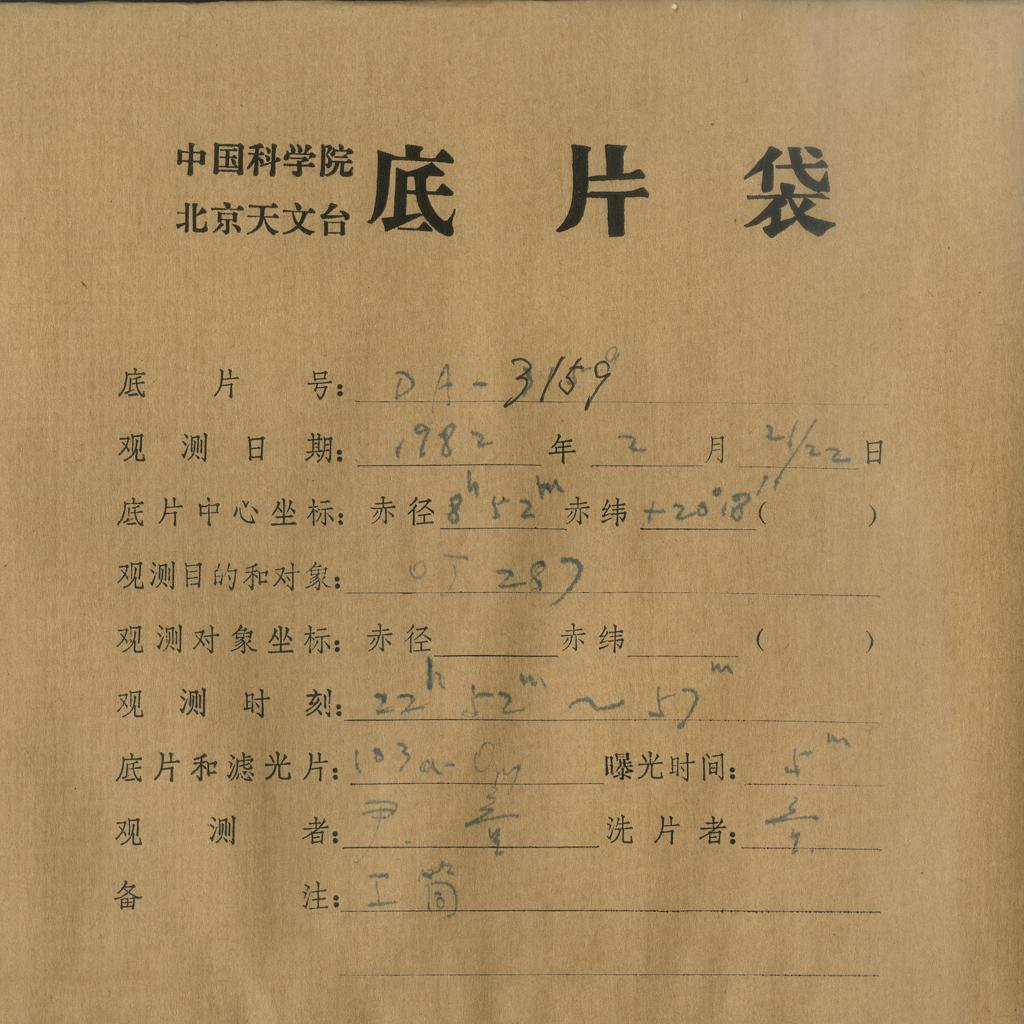 中国科学院
北京天文台
底片袋
底片号： DA-3159
观测日期： 1982 年 2 月 21/22 日
底片中心坐标： 赤径 8h 52m 赤纬 +20°18′ ( )
观测目的和对象： OJ 287
观测对象坐标： 赤径 赤纬 ( )
观测时刻： 22h 52m ～ 57m
底片和滤光片： 103a-O 曝光时间： 5m
观测者： 尹. 洗片者：
备注： 工 筒